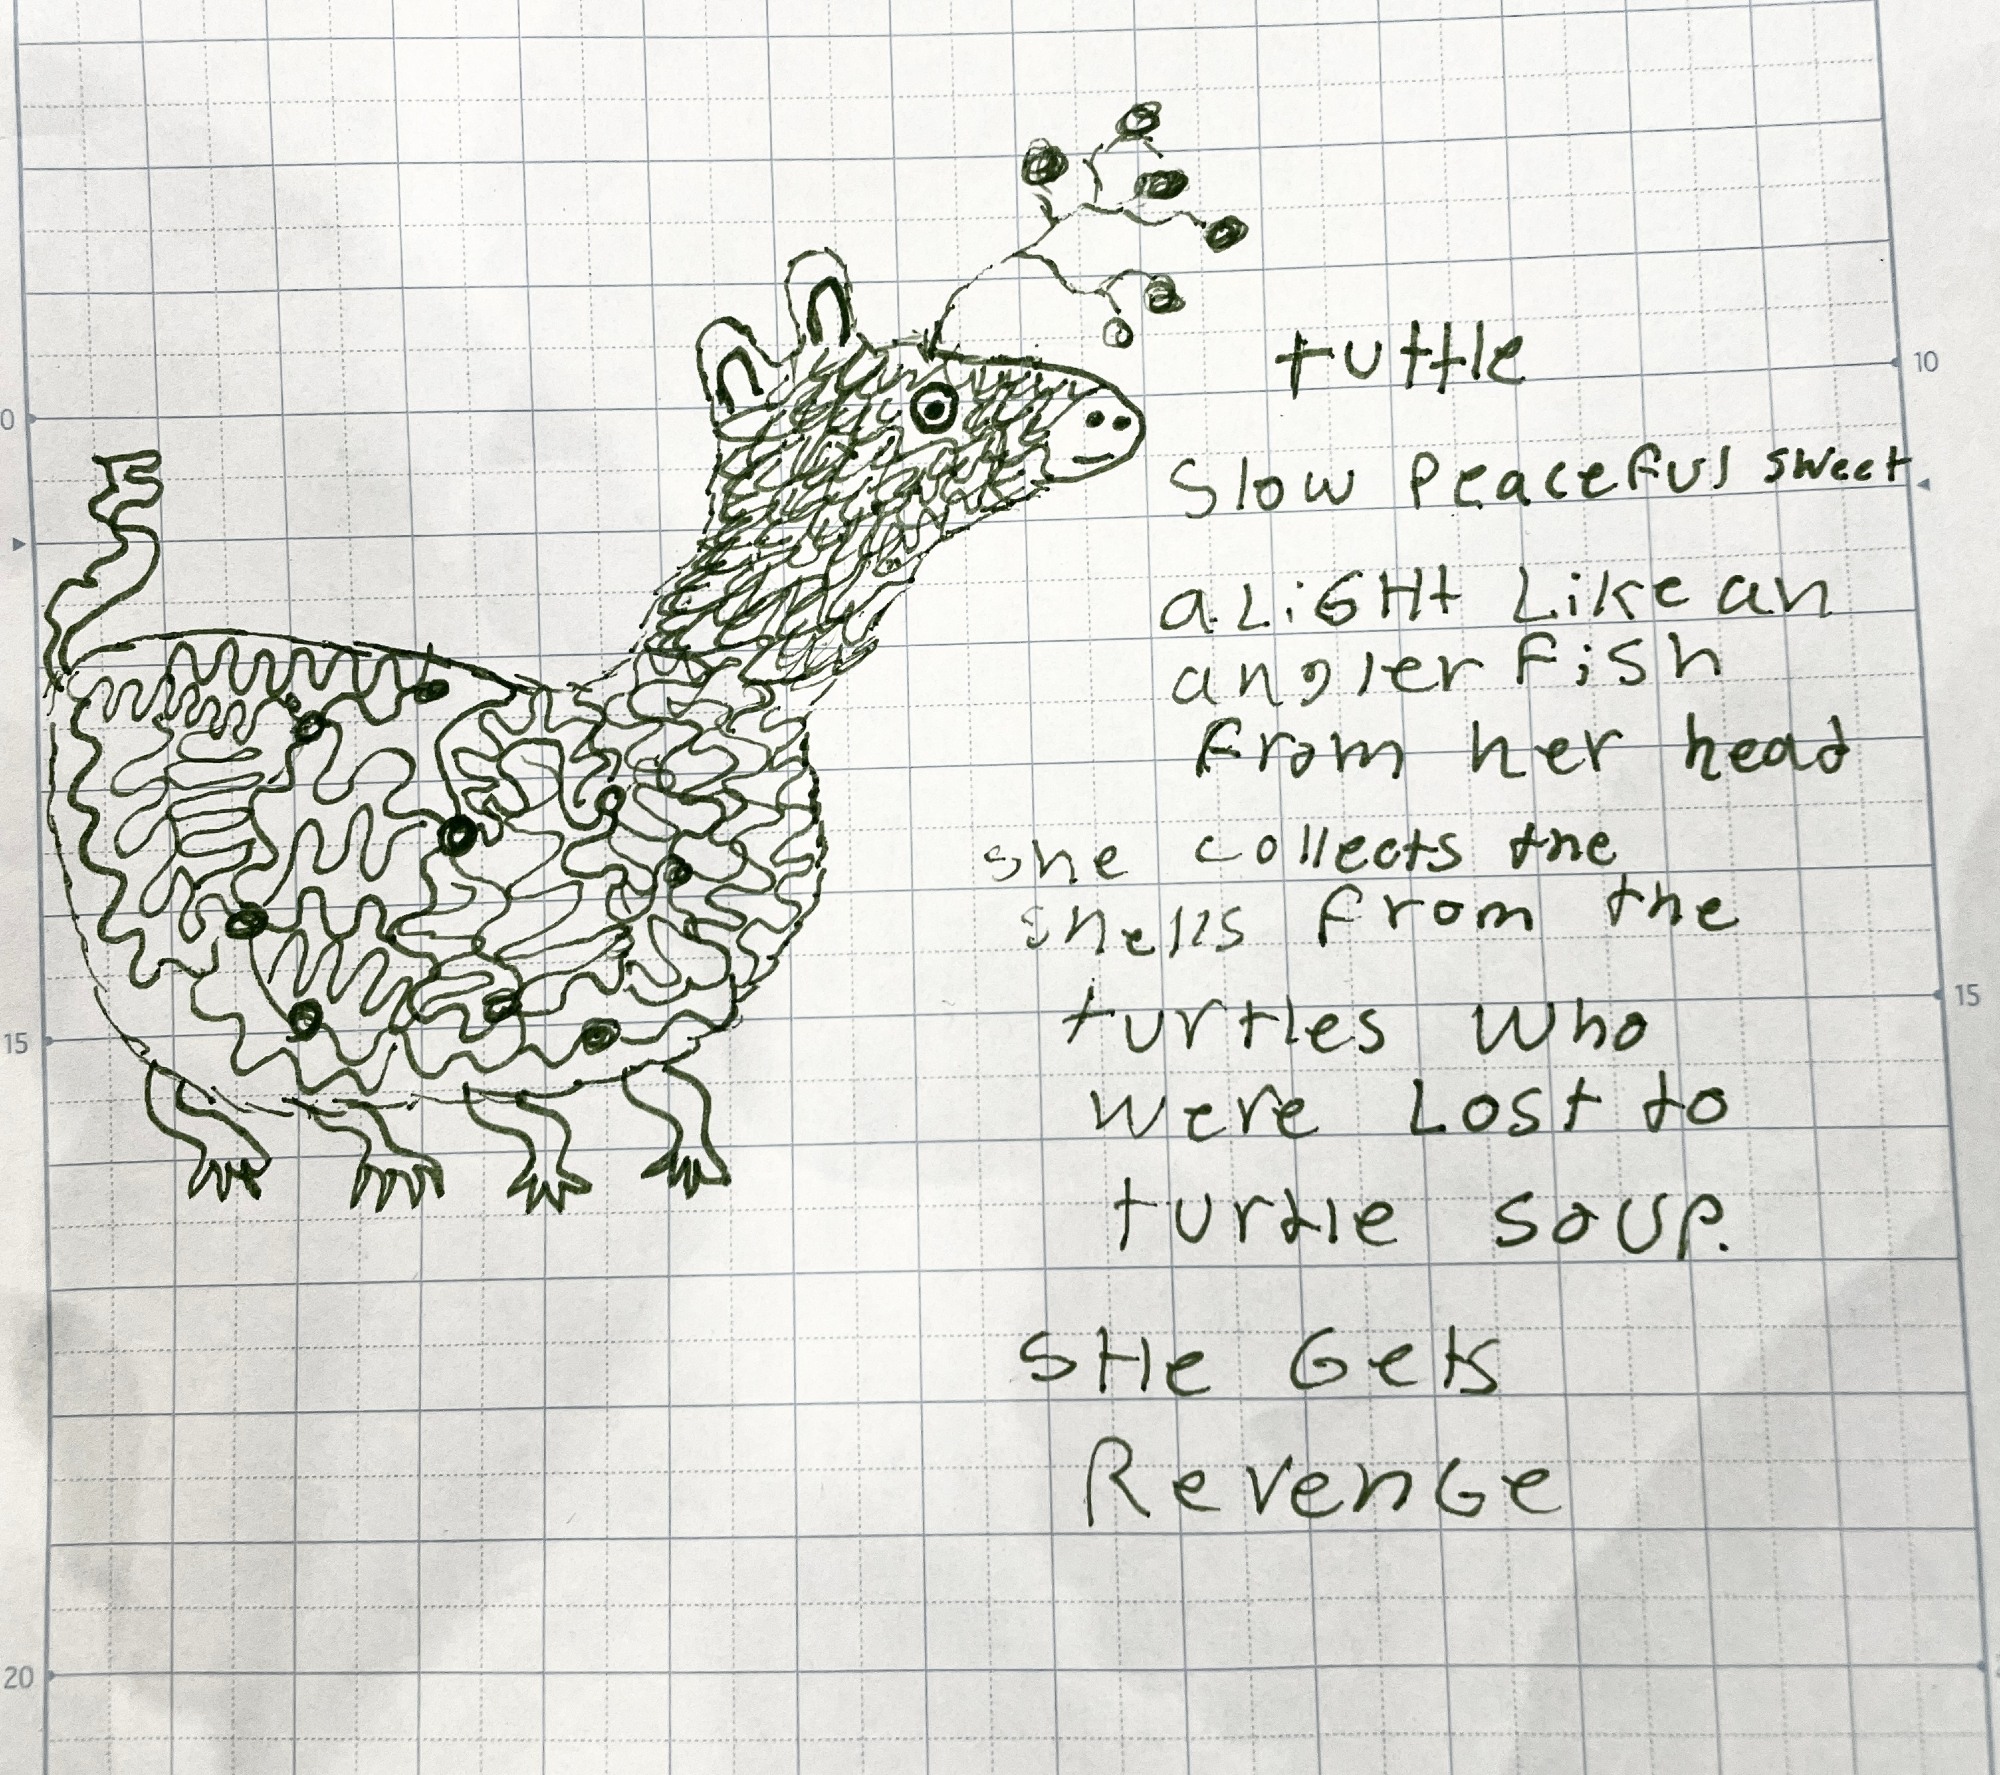 10
tuttle
0
Slow Peaceful sweet
a LiGHt Like an
angler Fish
From her head
she collects the
shells from the
15
turtles Who
15
were Lost to
turtle soup.
SHe Gets
RevenGe
20